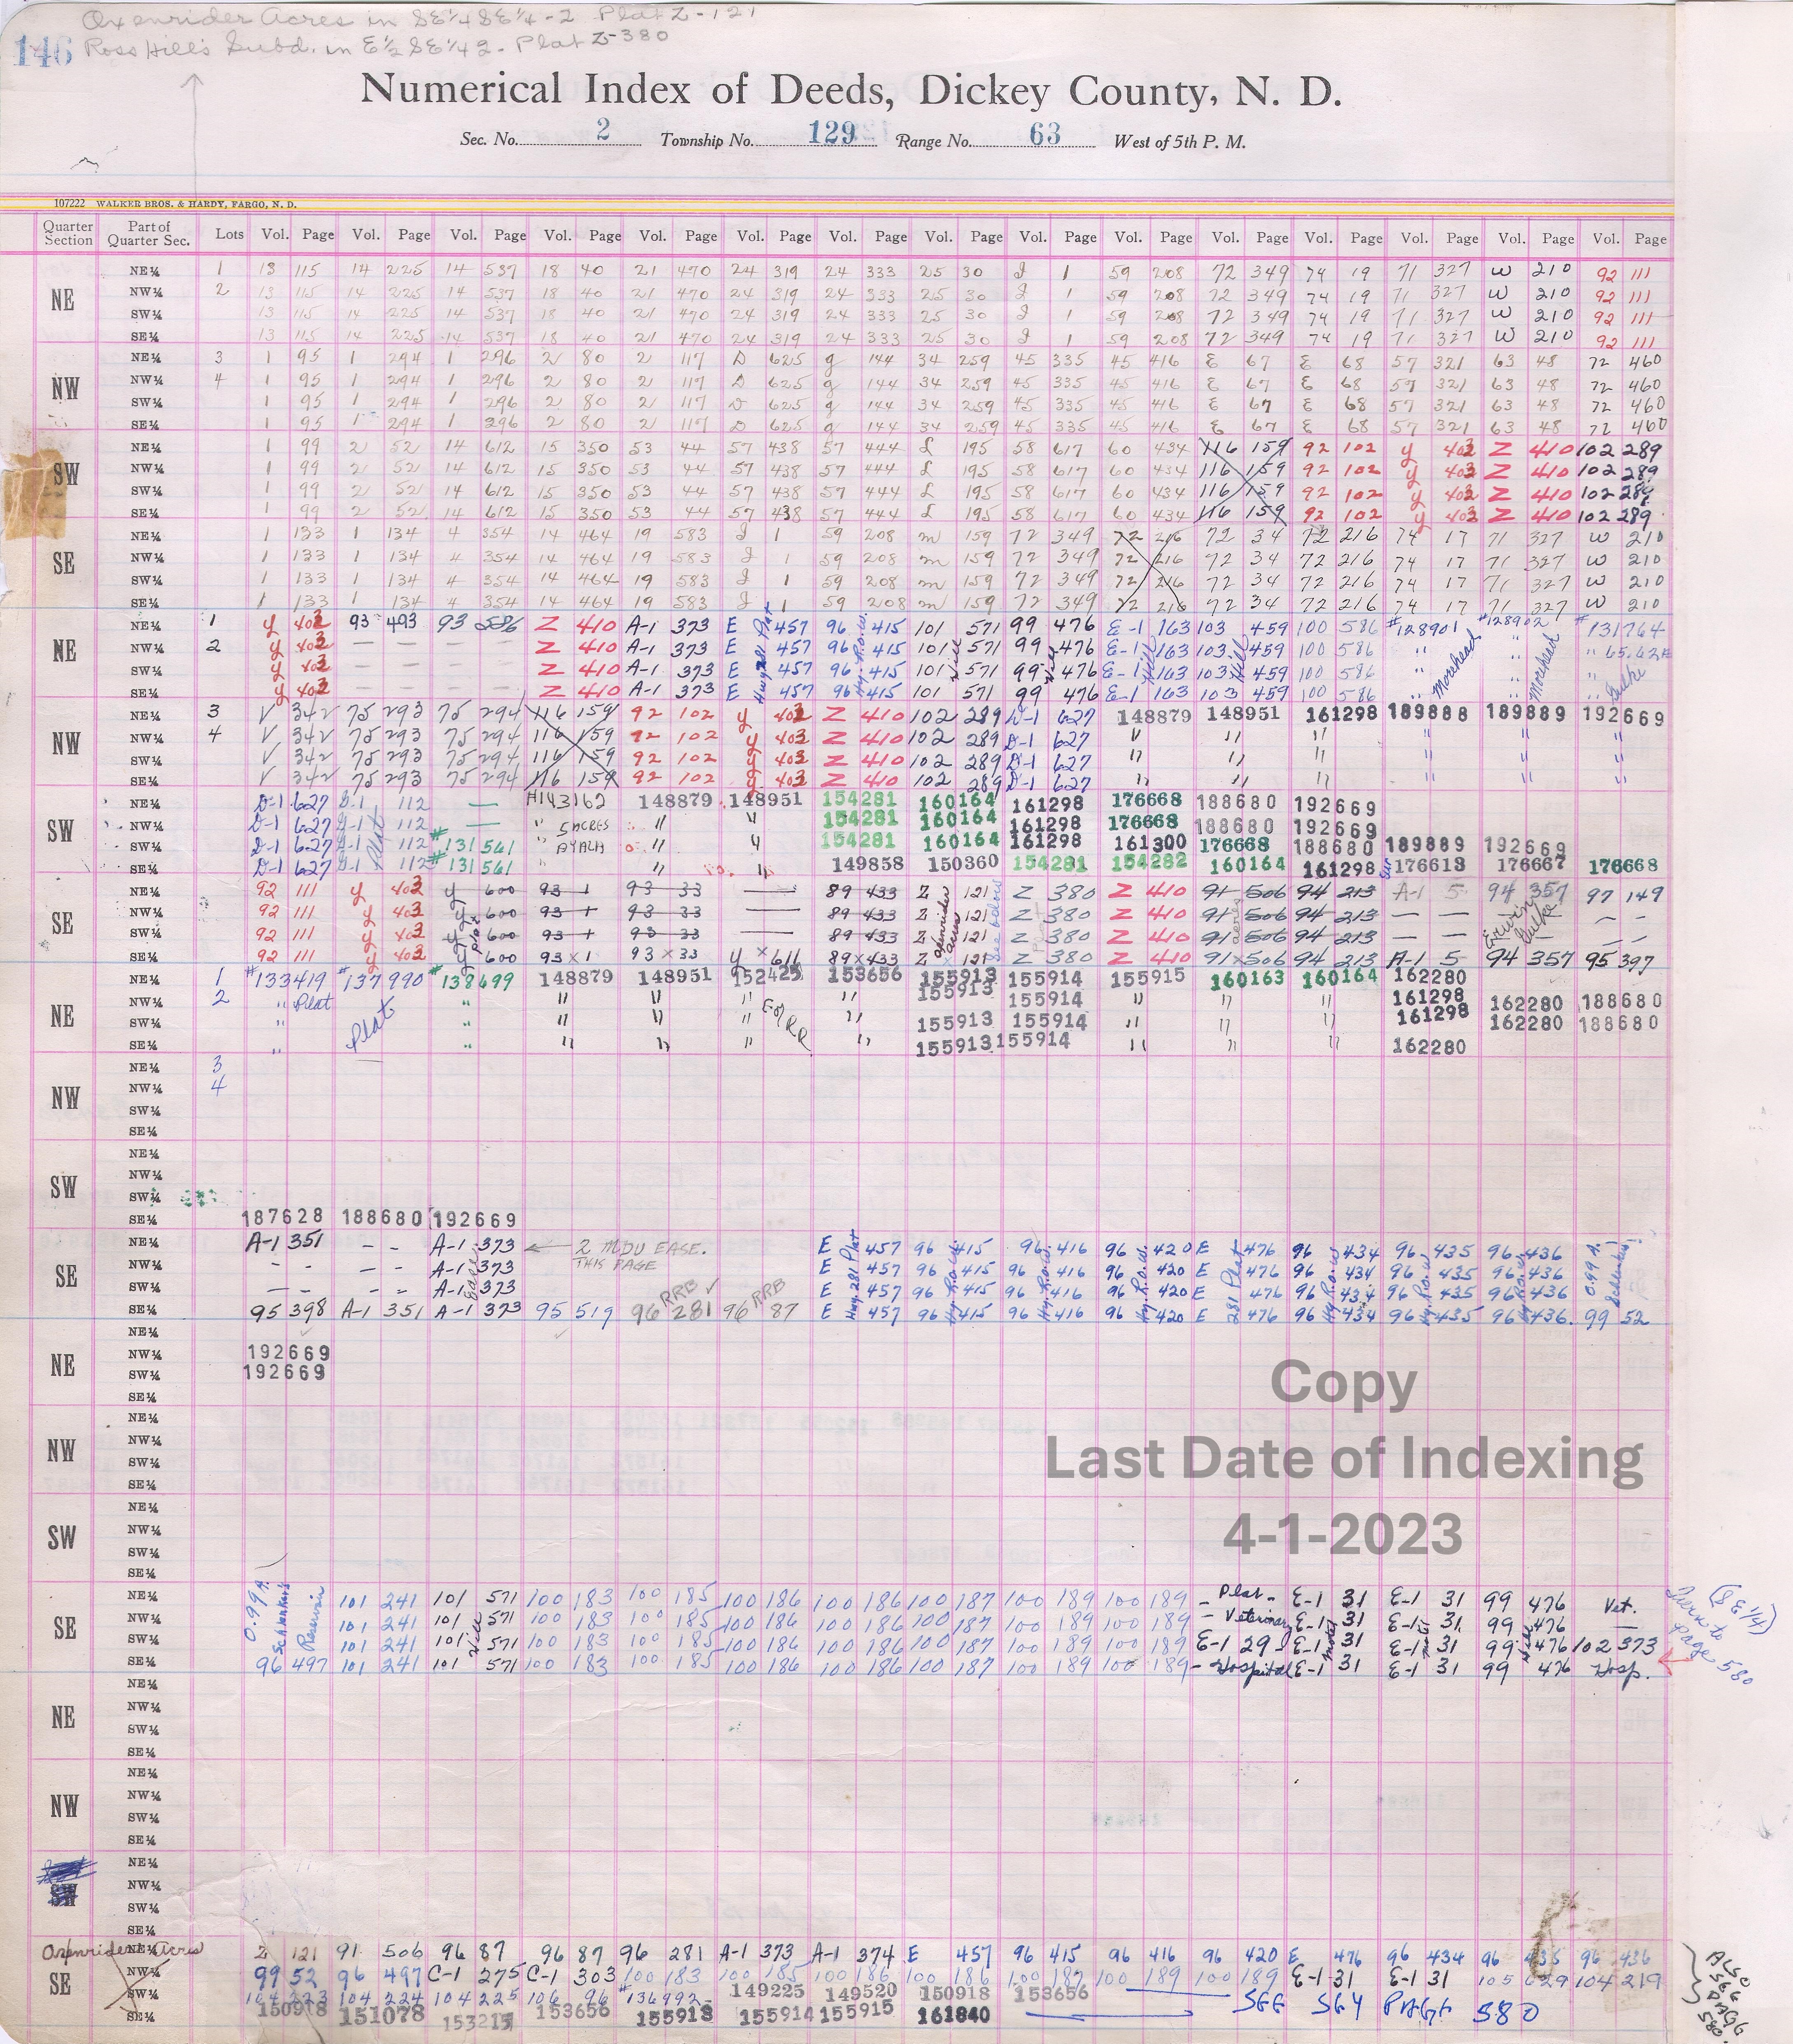 Oxenrider Acres in SE¼SE¼-2 Plat Z-121
146 Ross Hill's Subd. in E½SE¼ 2 - Plat Z-380
Numerical Index of Deeds, Dickey County, N. D.
Sec. No. 2 Township No. 129 Range No. 63 West of 5th P. M.
107222 WALKER BROS. & HARDY, FARGO, N. D.
Quarter Section Part of Quarter Sec. Lots Vol. Page Vol. Page Vol. Page Vol. Page Vol. Page Vol. Page Vol. Page Vol. Page Vol. Page Vol. Page Vol. Page Vol. Page Vol. Page Vol. Page Vol. Page
NE
NE¼ 1 13 115 14 225 14 537 18 40 21 470 24 319 24 333 25 30 J 1 59 208 72 349 74 19 71 327 W 210 92 111
NW¼ 2 13 115 14 225 14 537 18 40 21 470 24 319 24 333 25 30 J 1 59 208 72 349 74 19 71 327 W 210 92 111
SW¼ 13 115 14 225 14 537 18 40 21 470 24 319 24 333 25 30 J 1 59 208 72 349 74 19 71 327 W 210 92 111
SE¼ 13 115 14 225 14 537 18 40 21 470 24 319 24 333 25 30 J 1 59 208 72 349 74 19 71 327 W 210 92 111
NW
NE¼ 3 1 95 1 294 1 296 2 80 2 117 D 625 g 144 34 259 45 335 45 416 E 67 E 68 57 321 63 48 72 460
NW¼ 4 1 95 1 294 1 296 2 80 2 117 D 625 g 144 34 259 45 335 45 416 E 67 E 68 57 321 63 48 72 460
SW¼ 1 95 1 294 1 296 2 80 2 117 D 625 g 144 34 259 45 335 45 416 E 67 E 68 57 321 63 48 72 460
SE¼ 1 95 1 294 1 296 2 80 2 117 D 625 g 144 34 259 45 335 45 416 E 67 E 68 57 321 63 48 72 460
SW
NE¼ 1 99 2 52 14 612 15 350 53 44 57 438 57 444 L 195 58 617 60 434 116 159 92 102 y 403 Z 410 102 289
NW¼ 1 99 2 52 14 612 15 350 53 44 57 438 57 444 L 195 58 617 60 434 116 159 92 102 y 403 Z 410 102 289
SW¼ 1 99 2 52 14 612 15 350 53 44 57 438 57 444 L 195 58 617 60 434 116 159 92 102 y 403 Z 410 102 289
SE¼ 1 99 2 52 14 612 15 350 53 44 57 438 57 444 L 195 58 617 60 434 116 159 92 102 y 403 Z 410 102 289
SE
NE¼ 1 133 1 134 4 354 14 464 19 583 J 1 59 208 m 159 72 349 72 216 72 34 72 216 74 17 71 327 W 210
NW¼ 1 133 1 134 4 354 14 464 19 583 J 1 59 208 m 159 72 349 72 216 72 34 72 216 74 17 71 327 W 210
SW¼ 1 133 1 134 4 354 14 464 19 583 J 1 59 208 m 159 72 349 72 216 72 34 72 216 74 17 71 327 W 210
SE¼ 1 133 1 134 4 354 14 464 19 583 J 1 59 208 m 159 72 349 72 216 72 34 72 216 74 17 71 327 W 210
NE
NE¼ 1 y 403 93 493 93 586 Z 410 A-1 373 E 457 96 415 101 571 99 476 E-1 163 103 459 100 586 #128901 #128902 #131764
NW¼ 2 y 403 — — — — Z 410 A-1 373 E 457 96 415 101 571 99 476 E-1 163 103 459 100 586 " " "
SW¼ y 403 — — — — Z 410 A-1 373 E 457 96 415 101 571 99 476 E-1 163 103 459 100 586 " "
SE¼ y 403 — — — — Z 410 A-1 373 E 457 96 415 101 571 99 476 E-1 163 103 459 100 586 " "
Hwy 281 Plat
Hy. R.o.W.
Hill
Morehead
Morehead
Gulke
NW
NE¼ 3 V 342 75 293 75 294 116 159 92 102 y 403 Z 410 102 289 D-1 627 148879 148951 161298 189888 189889 192669
NW¼ 4 V 342 75 293 75 294 116 159 92 102 y 403 Z 410 102 289 D-1 627 " " " " " "
SW¼ V 342 75 293 75 294 116 159 92 102 y 403 Z 410 102 289 D-1 627 " " " " " "
SE¼ V 342 75 293 75 294 116 159 92 102 y 403 Z 410 102 289 D-1 627 " " " " " "
SW
NE¼ D-1 627 112 — H143162 148879 148951 154281 160164 161298 176668 188680 192669
NW¼ D-1 627 112 — " 5 ACRES " " 154281 160164 161298 176668 188680 192669
SW¼ D-1 627 112 #131561 " " " 154281 160164 161298 161300 176668 188680 189889 192669
SE¼ D-1 627 112 #131561 " " " 149858 150360 154281 154282 160164 161298 176613 176667 176668
Plat
SE
NE¼ 92 111 y 403 y 600 93 1 93 33 — 89 433 Z 121 Z 380 Z 410 91 506 94 213 A-1 5 94 357 97 149
NW¼ 92 111 y 403 y 600 93 1 93 33 — 89 433 Z 121 Z 380 Z 410 91 506 94 213 — — — —
SW¼ 92 111 y 403 y 600 93 1 93 33 — 89 433 Z 121 Z 380 Z 410 91 506 94 213 — — — —
SE¼ 92 111 y 403 y 600 93 x 1 93 x 33 y x 611 89 x 433 Z x 121 Z 380 Z 410 91 x 506 94 213 A-1 5 94 357 95 397
Plat
Oxenrider acres
See below
Erwin Gulke
NE
NE¼ 1 #133419 #137990 #138699 148879 148951 152425 153656 155913 155914 155915 160163 160164 162280
NW¼ 2 " Plat " " " " " 155913 155914 " " " 161298 162280 188680
SW¼ " Plat " " " " " 155913 155914 " " " 161298 162280 188680
SE¼ " " " " " " 155913 155914 " " " 162280
NW
NE¼ 3
NW¼ 4
SW¼
SE¼
SW
NE¼
NW¼
SW¼
SE¼ 187628 188680 192669
SE
NE¼ A-1 351 - - A-1 373 ← 2 MDU EASE. THIS PAGE E 457 96 415 96 416 96 420 E 476 96 434 96 435 96 436
NW¼ - - - - A-1 373 E 457 96 415 96 416 96 420 E 476 96 434 96 435 96 436
SW¼ - - - - A-1 373 E 457 96 415 96 416 96 420 E 476 96 434 96 435 96 436
SE¼ 95 398 A-1 351 A-1 373 95 519 96 281 96 87 E 457 96 415 96 416 96 420 E 476 96 434 96 435 96 436 99 52
RRB ✓ RRB
Hwy. 281 Plat
Hy. R.o.W.
281 Plat
0.99 A.
NE
NE¼
NW¼ 192669
SW¼ 192669
SE¼
Copy
Last Date of Indexing
4-1-2023
NW
NE¼
NW¼
SW¼
SE¼
SW
NE¼
NW¼
SW¼
SE¼
SE
NE¼ 101 241 101 571 100 183 100 185 100 186 100 186 100 187 100 189 100 189 - Plat - E-1 31 E-1 31 99 476 Vet.
NW¼ 101 241 101 571 100 183 100 185 100 186 100 186 100 187 100 189 100 189 - Veterinary E-1 31 E-1 31 99 476 —
SW¼ 101 241 101 571 100 183 100 185 100 186 100 186 100 187 100 189 100 189 E-1 29 E-1 31 E-1 31 99 476 102 373
SE¼ 96 497 101 241 101 571 100 183 100 185 100 186 100 186 100 187 100 189 100 189 - Hospital E-1 31 E-1 31 99 476 Hosp.
0.99 A.
Reservoir
Hill
Turn to page 580 (SE¼)
NE
NE¼
NW¼
SW¼
SE¼
NW
NE¼
NW¼
SW¼
SE¼
SW
NE¼
NW¼
SW¼
SE¼
Oxenrider Acres
SE
NE¼ Z 121 91 506 96 87 96 87 96 281 A-1 373 A-1 374 E 457 96 415 96 416 96 420 E 476 96 434 96 435 96 436
NW¼ 99 52 96 497 C-1 275 C-1 303 100 183 100 185 100 186 100 186 100 187 100 189 100 189 E-1 31 E-1 31 105 629 104 219
SW¼ 104 223 104 224 104 225 106 96 #136992 149225 149520 150918 153656 SEE SEY PAGE 580
SE¼ 150918 151078 153215 153656 155913 155914 155915 161840
ALSO SEE PAGE 580.